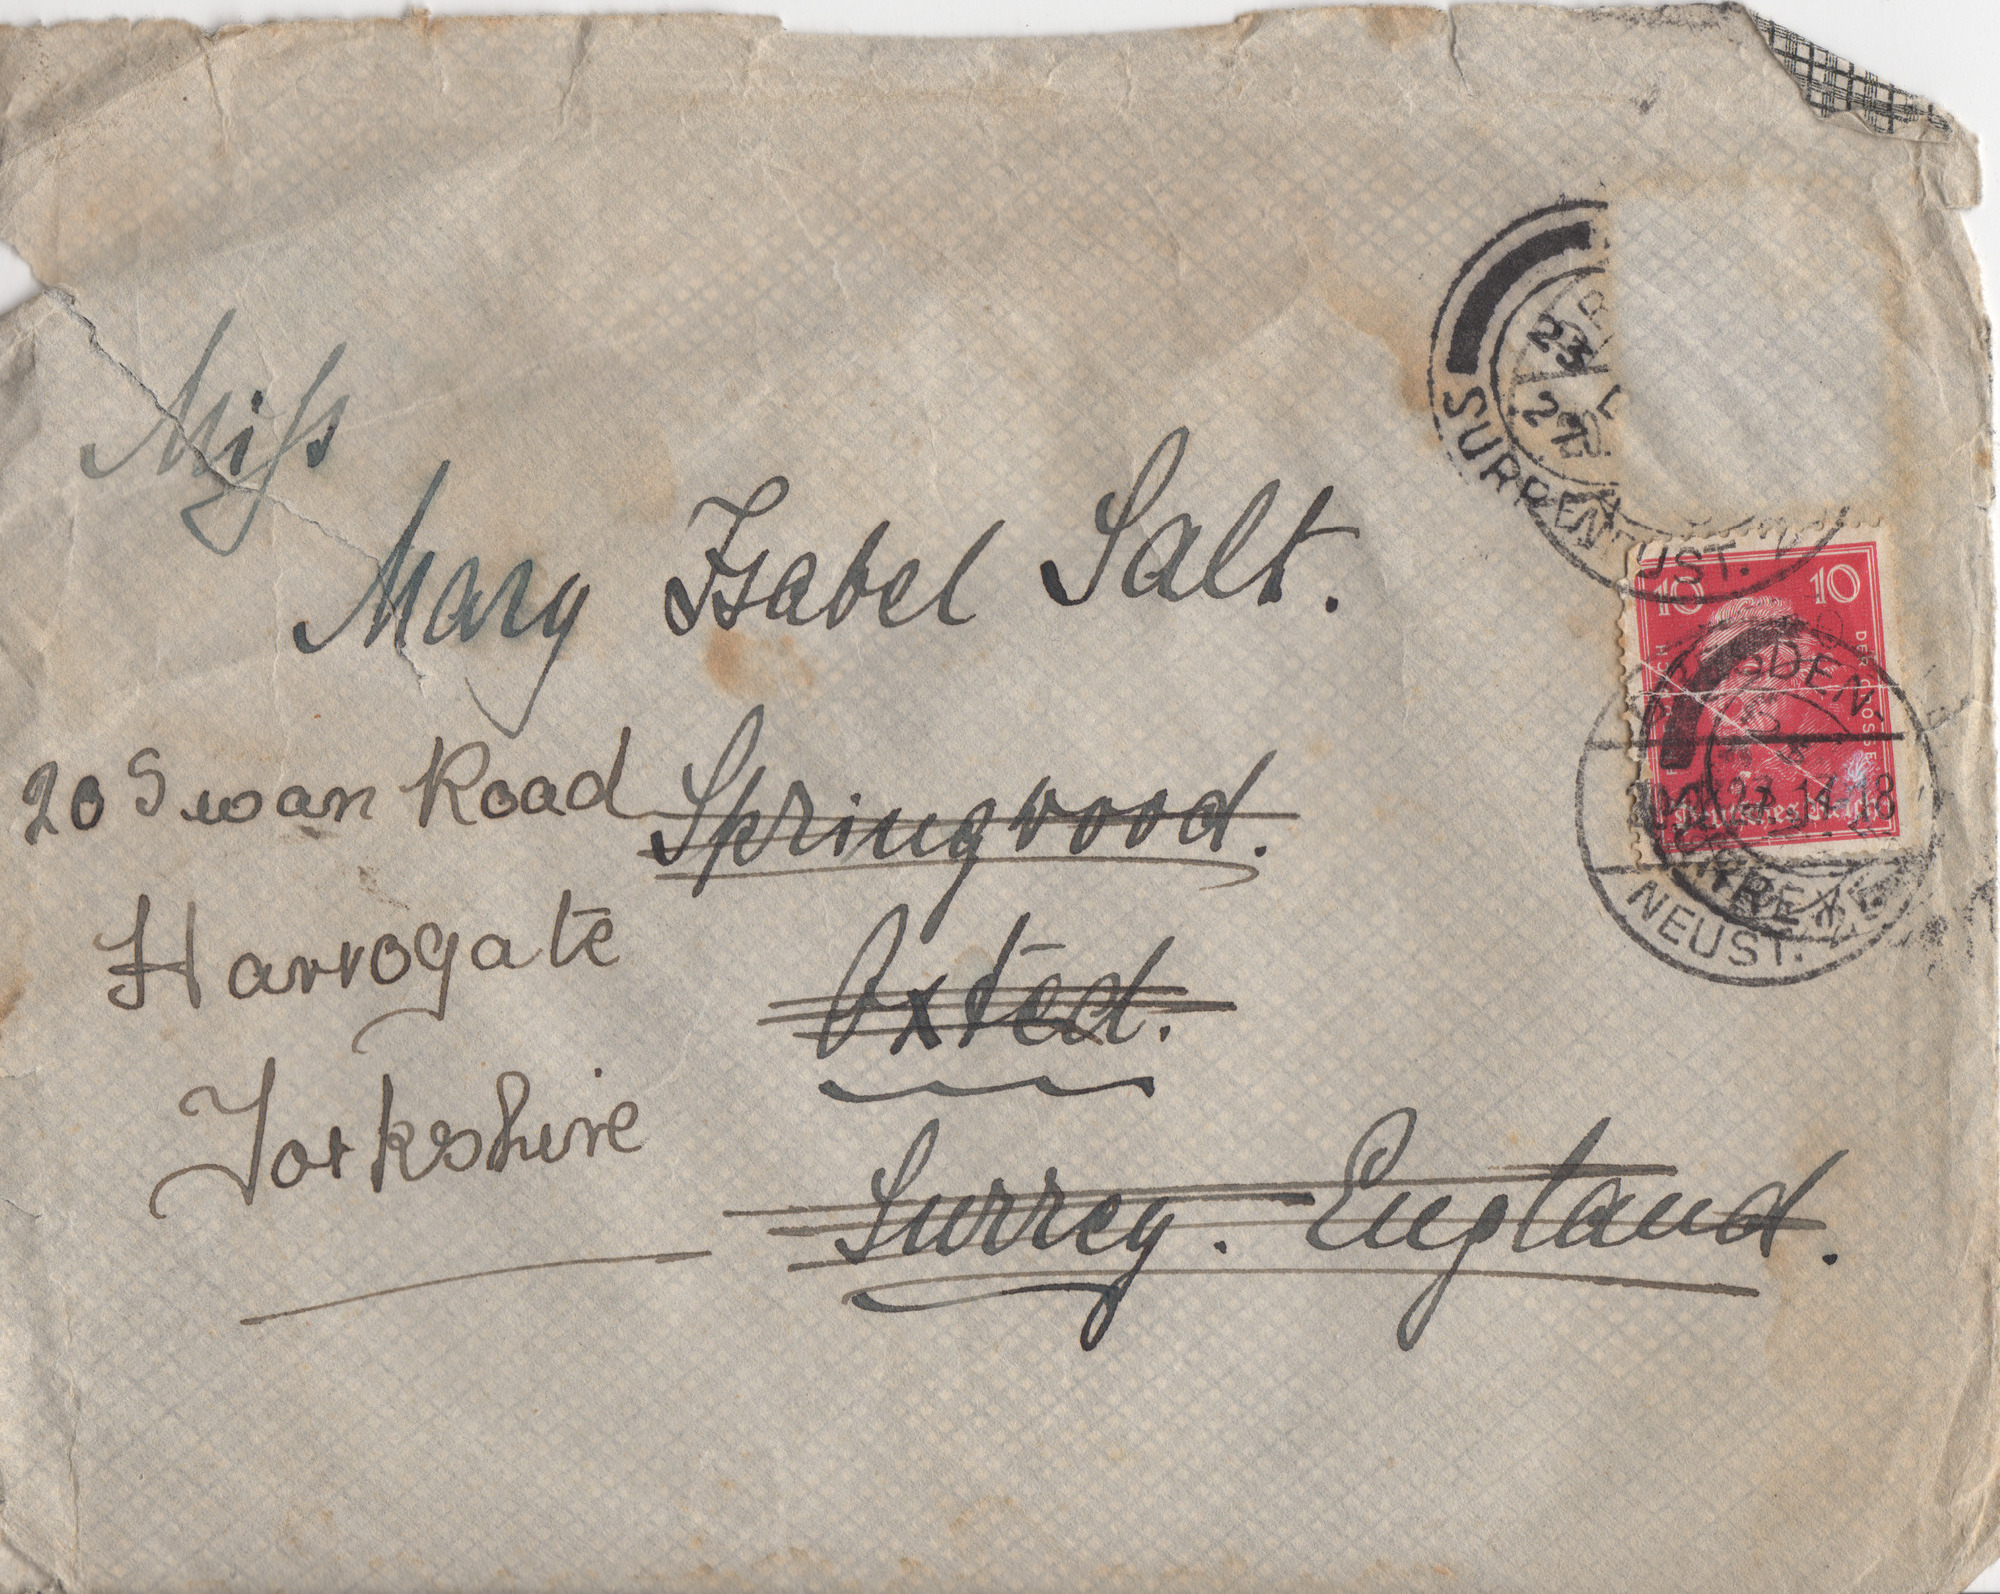 Miss
Mary Isabel Salt.
20 Swan Road
Springwood.
Harrogate
Oxted.
Yorkshire
Surrey. England.
SURREY
23
UST.
10 10
DER GROSSE
DRESDEN-
27. 17-18
Deutsches Reich
SURREY
NEUST.